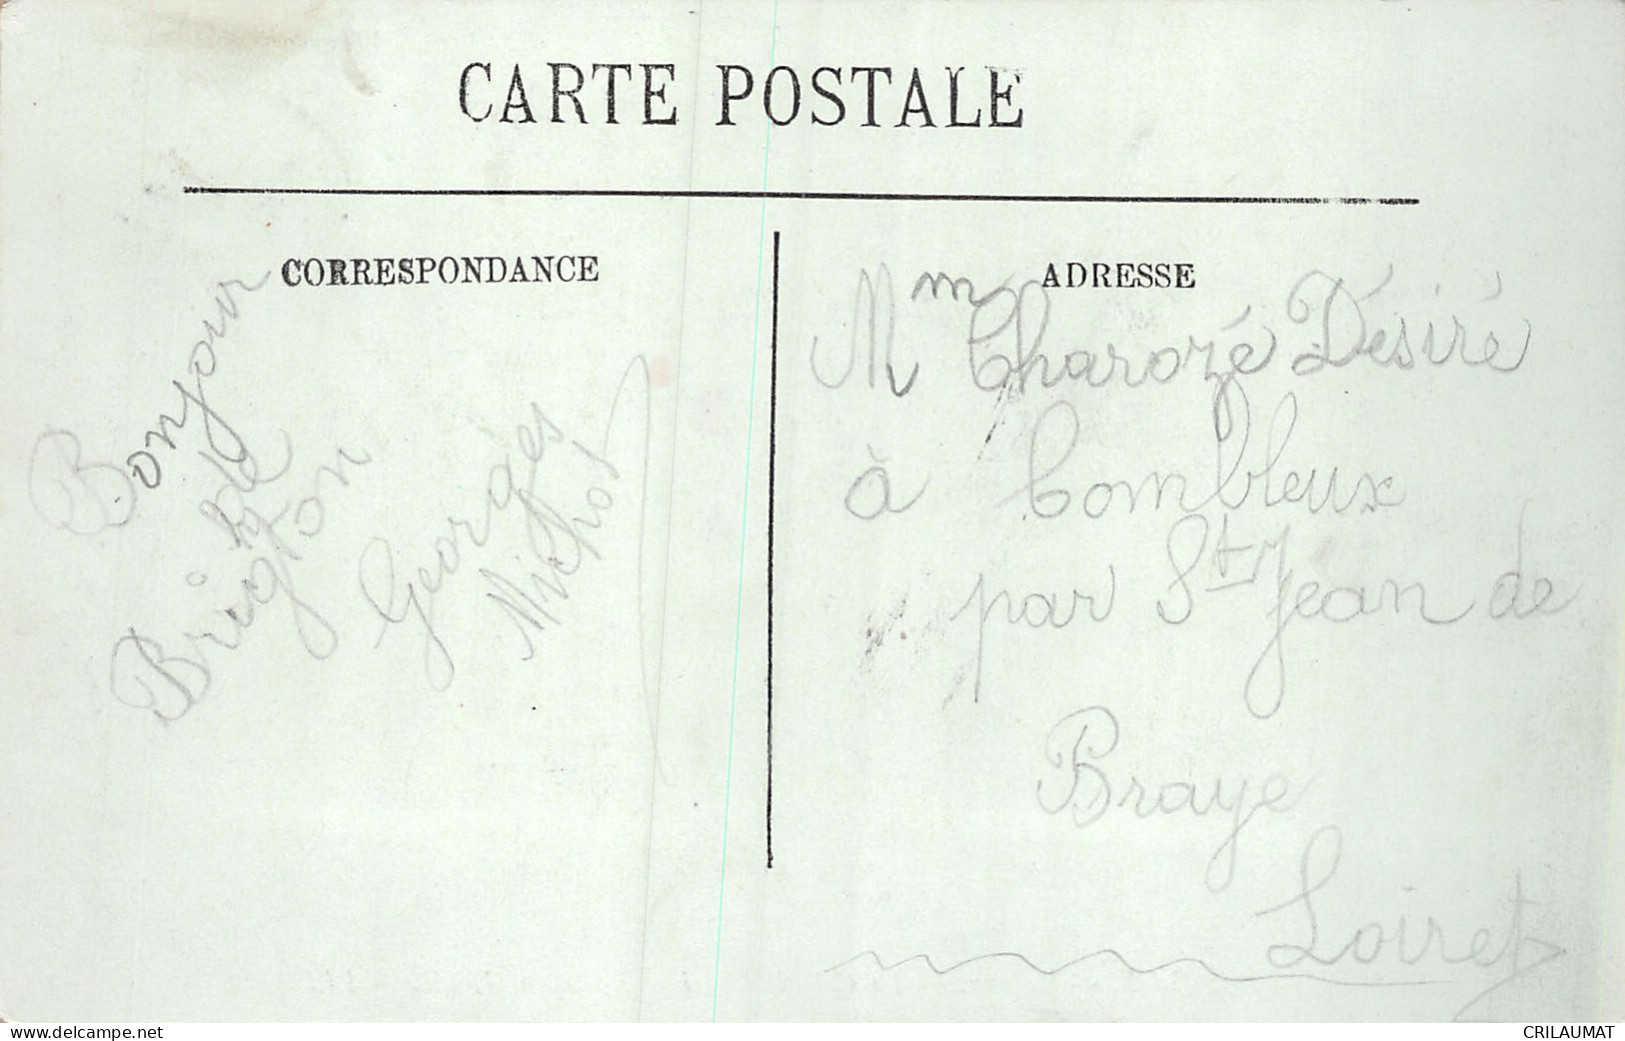 CARTE POSTALE
CORRESPONDANCE
Bonjour
de
Brigton
Georges
Michot
ADRESSE
Mm Charozé Désiré
à Combleux
par St Jean de
Braye
Loiret
www.delcampe.net
CRILAUMAT